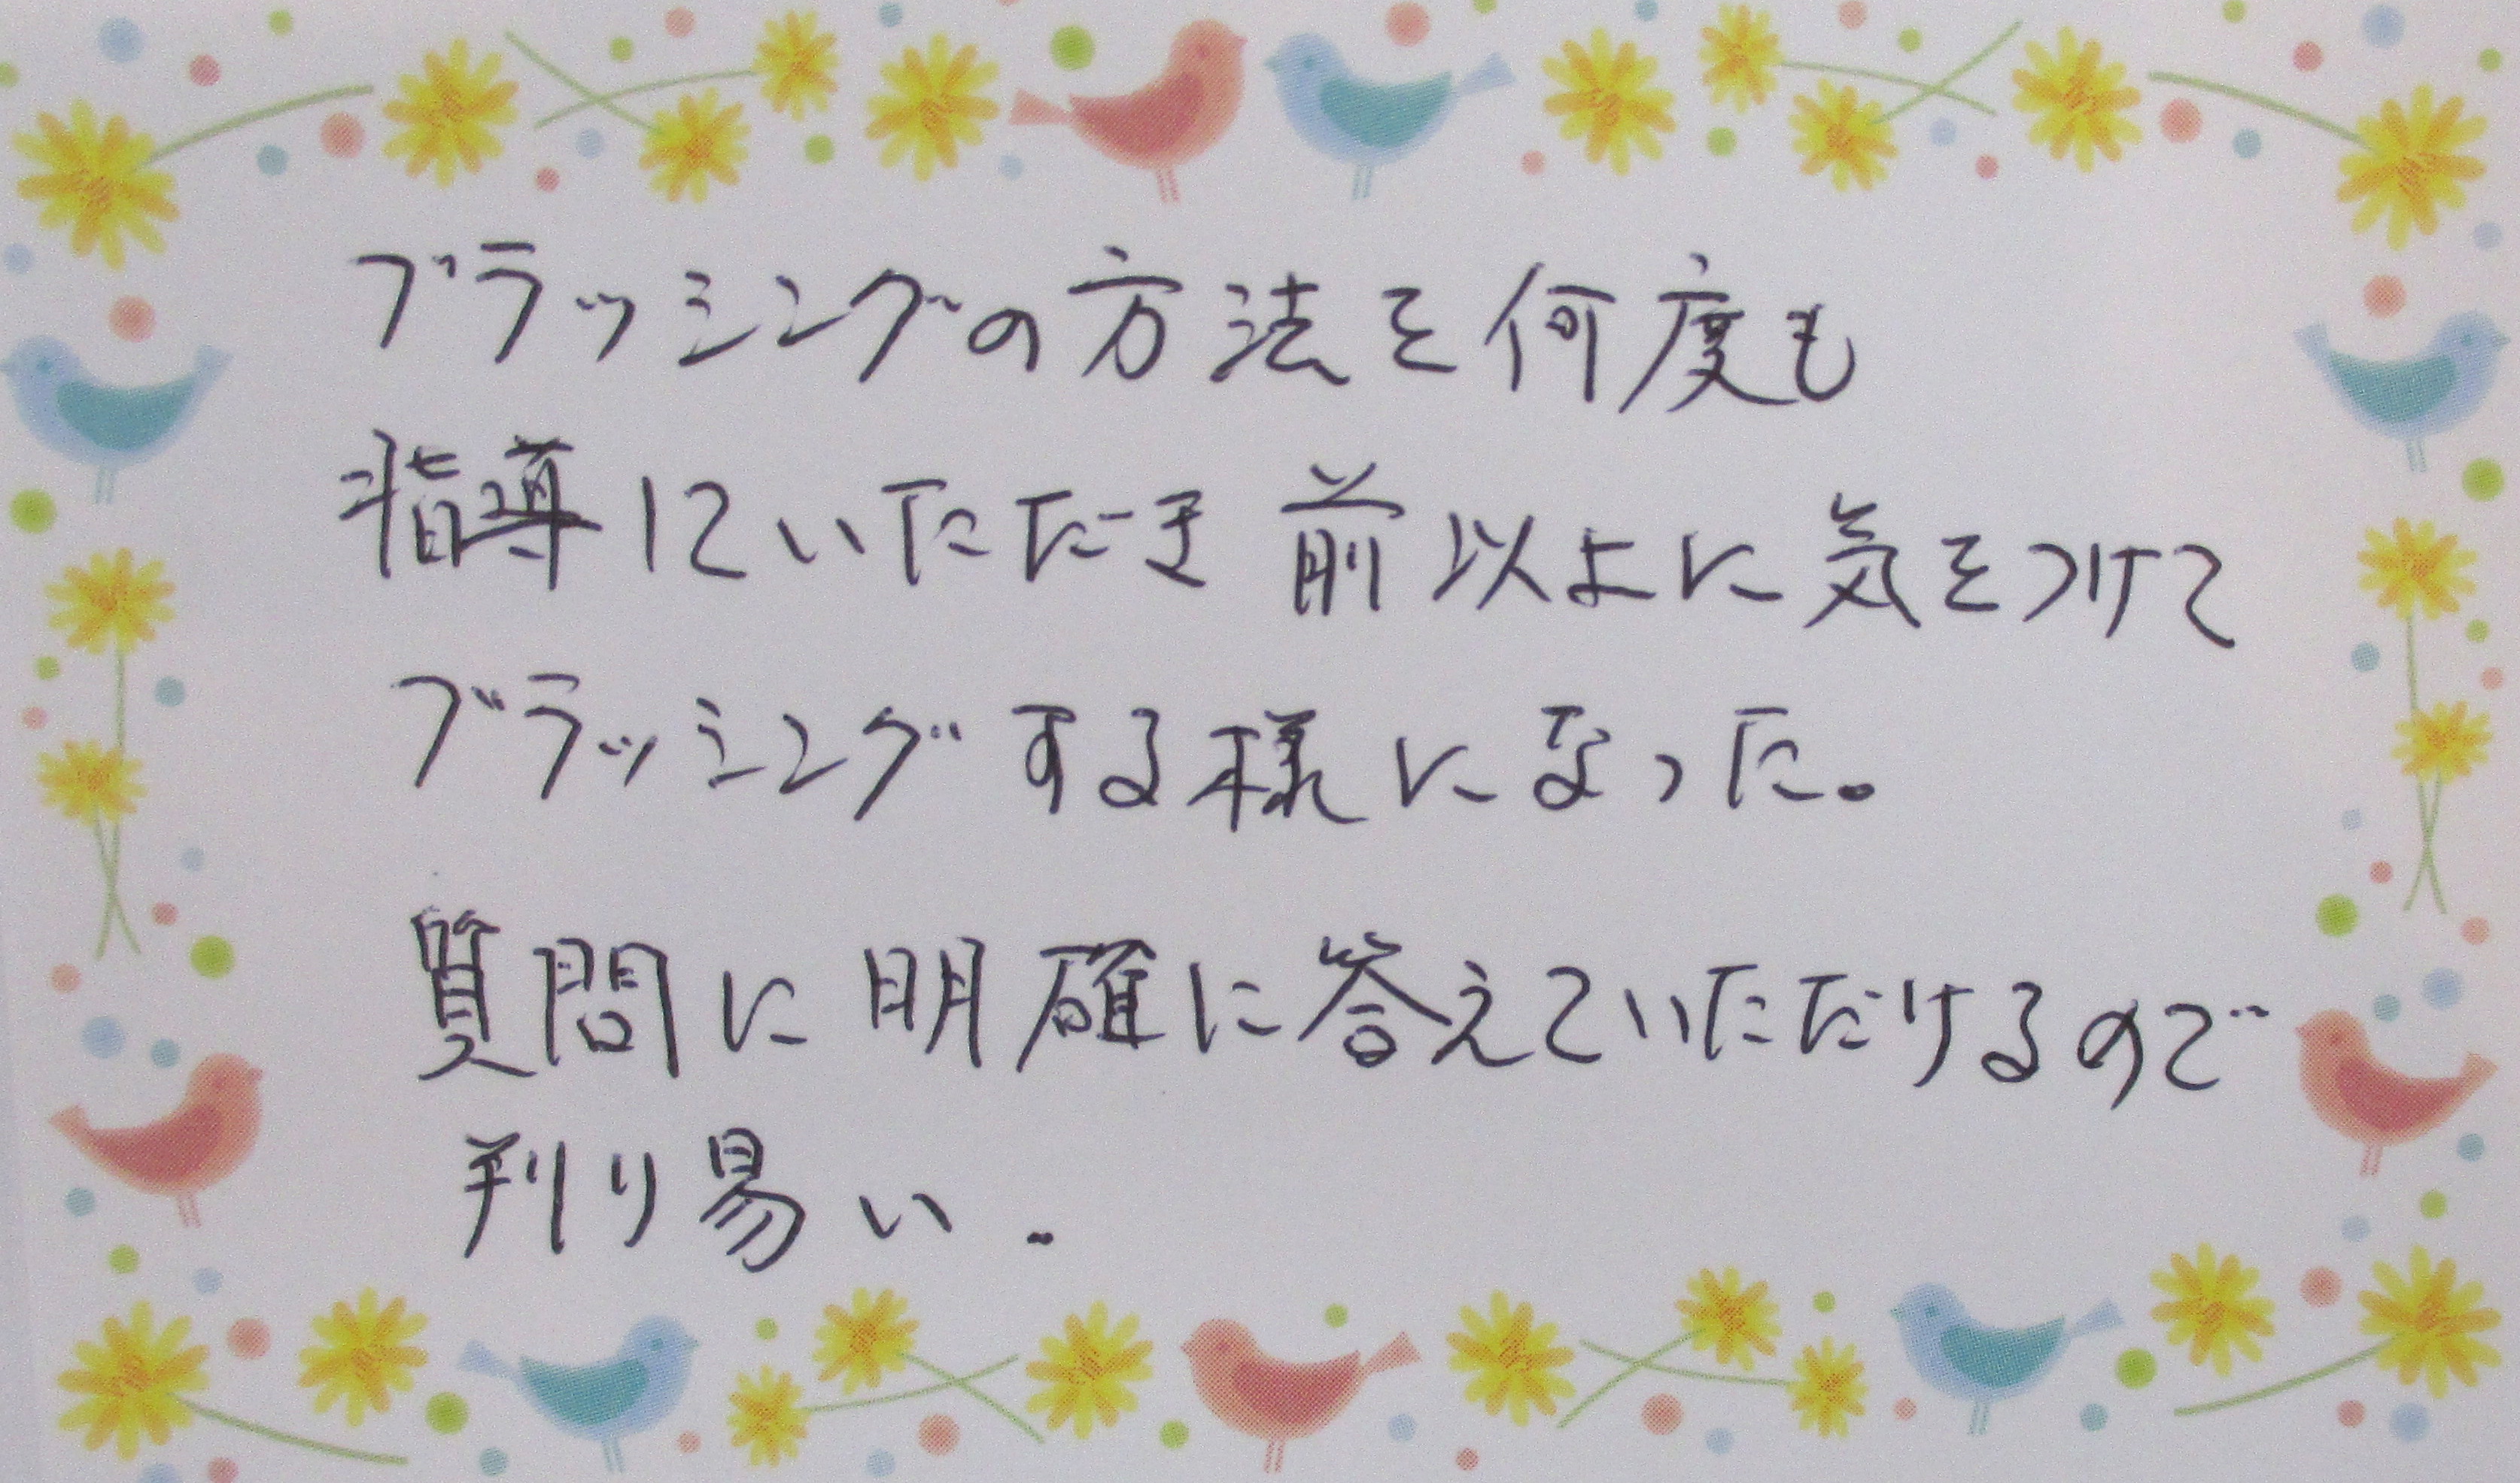 ブラッシングの方法を何度も
指導していただき前以上に気をつけて
ブラッシングする様になった。
質問に明確に答えていただけるので
判り易い.